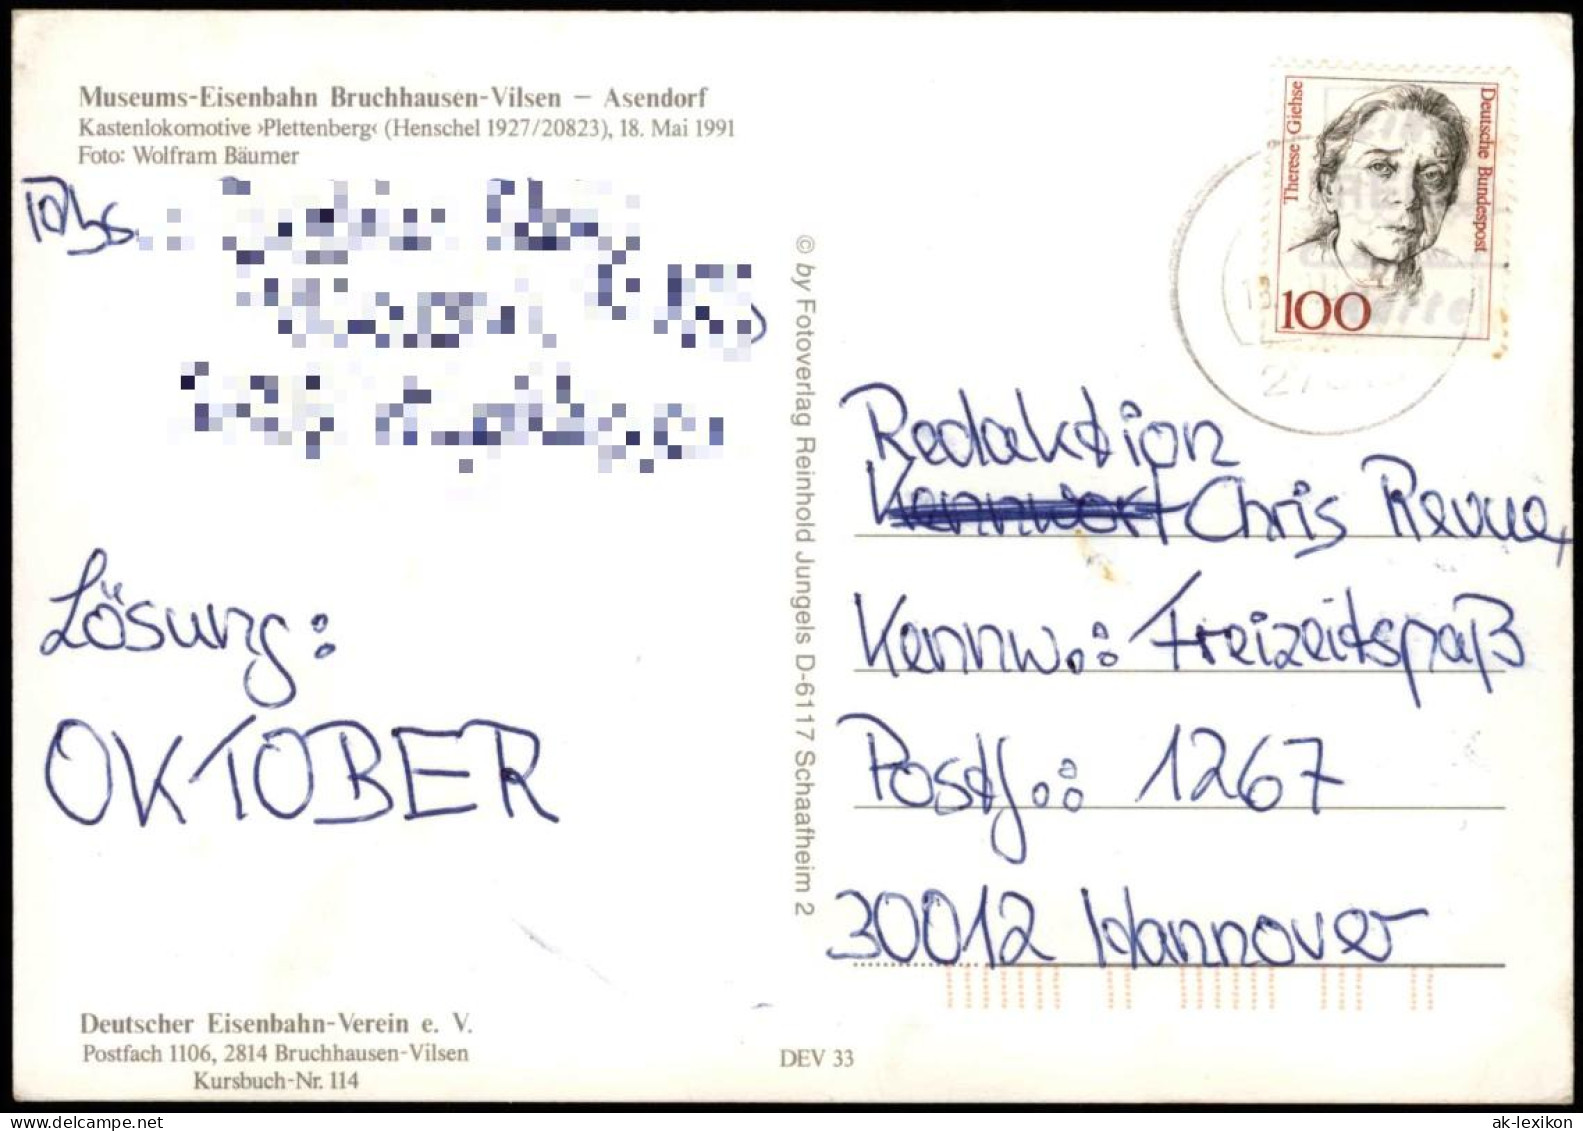 Museums-Eisenbahn Bruchhausen-Vilsen – Asendorf
Kastenlokomotive ›Plettenberg‹ (Henschel 1927/20823), 18. Mai 1991
Foto: Wolfram Bäumer
Abs.
Lösung:
OKTOBER
Deutscher Eisenbahn-Verein e. V.
Postfach 1106, 2814 Bruchhausen-Vilsen
Kursbuch-Nr. 114
© by Fotoverlag Reinhold Jungels D-6117 Schaafheim 2
DEV 33
Therese Giehse
Deutsche Bundespost
100
Redaktion
Kennwort Chris Revue,
Kennw.: Freizeitspaß
Postf.: 1267
30012 Hannover
ak-lexikon